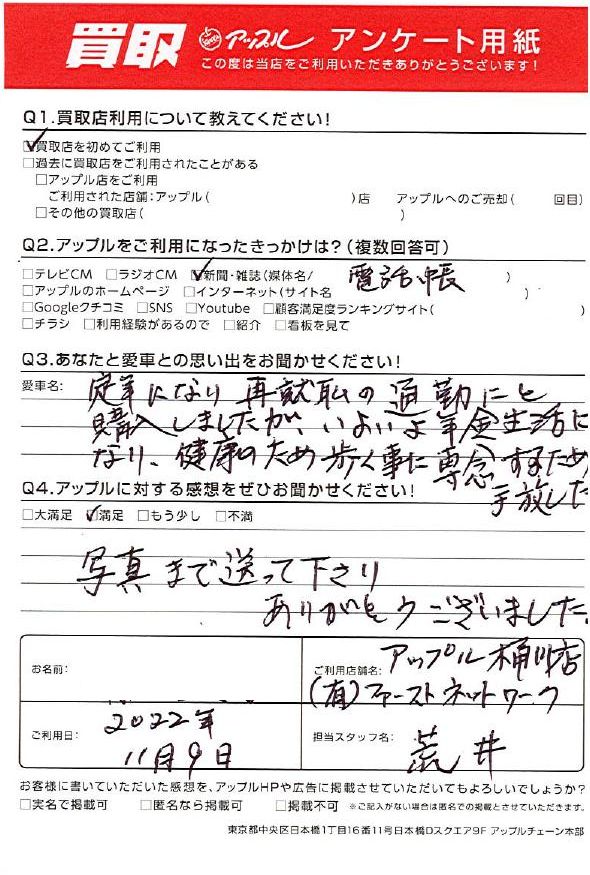 買取 アップル アンケート用紙
この度は当店をご利用いただきありがとうございます!
Q1.買取店利用について教えてください!
☑買取店を初めてご利用
□過去に買取店をご利用されたことがある
□アップル店をご利用
ご利用された店舗:アップル( )店 アップルへのご売却( 回目)
□その他の買取店( )
Q2.アップルをご利用になったきっかけは?(複数回答可)
□テレビCM □ラジオCM ☑新聞・雑誌(媒体名/ 電話帳 )
□アップルのホームページ □インターネット(サイト名 )
□Googleクチコミ □SNS □Youtube □顧客満足度ランキングサイト( )
□チラシ □利用経験があるので □紹介 □看板を見て
Q3.あなたと愛車との思い出をお聞かせください!
愛車名: 定年になり再就職の通勤にと
購入しましたが、いよいよ年金生活に
なり、健康のため歩く事に専念するため
手放した
Q4.アップルに対する感想をぜひお聞かせください!
□大満足 ☑満足 □もう少し □不満
写真まで送って下さり
ありがとうございました。
お名前:
ご利用店舗名: アップル桶川店
(有)ファーストネットワーク
ご利用日: 2022年
11月9日
担当スタッフ名: 荒井
お客様に書いていただいた感想を、アップルHPや広告に掲載させていただいてもよろしいでしょうか?
□実名で掲載可 □匿名なら掲載可 □掲載不可 ※ご記入がない場合は匿名での掲載とさせていただきます。
東京都中央区日本橋1丁目16番11号日本橋Dスクエア9F アップルチェーン本部